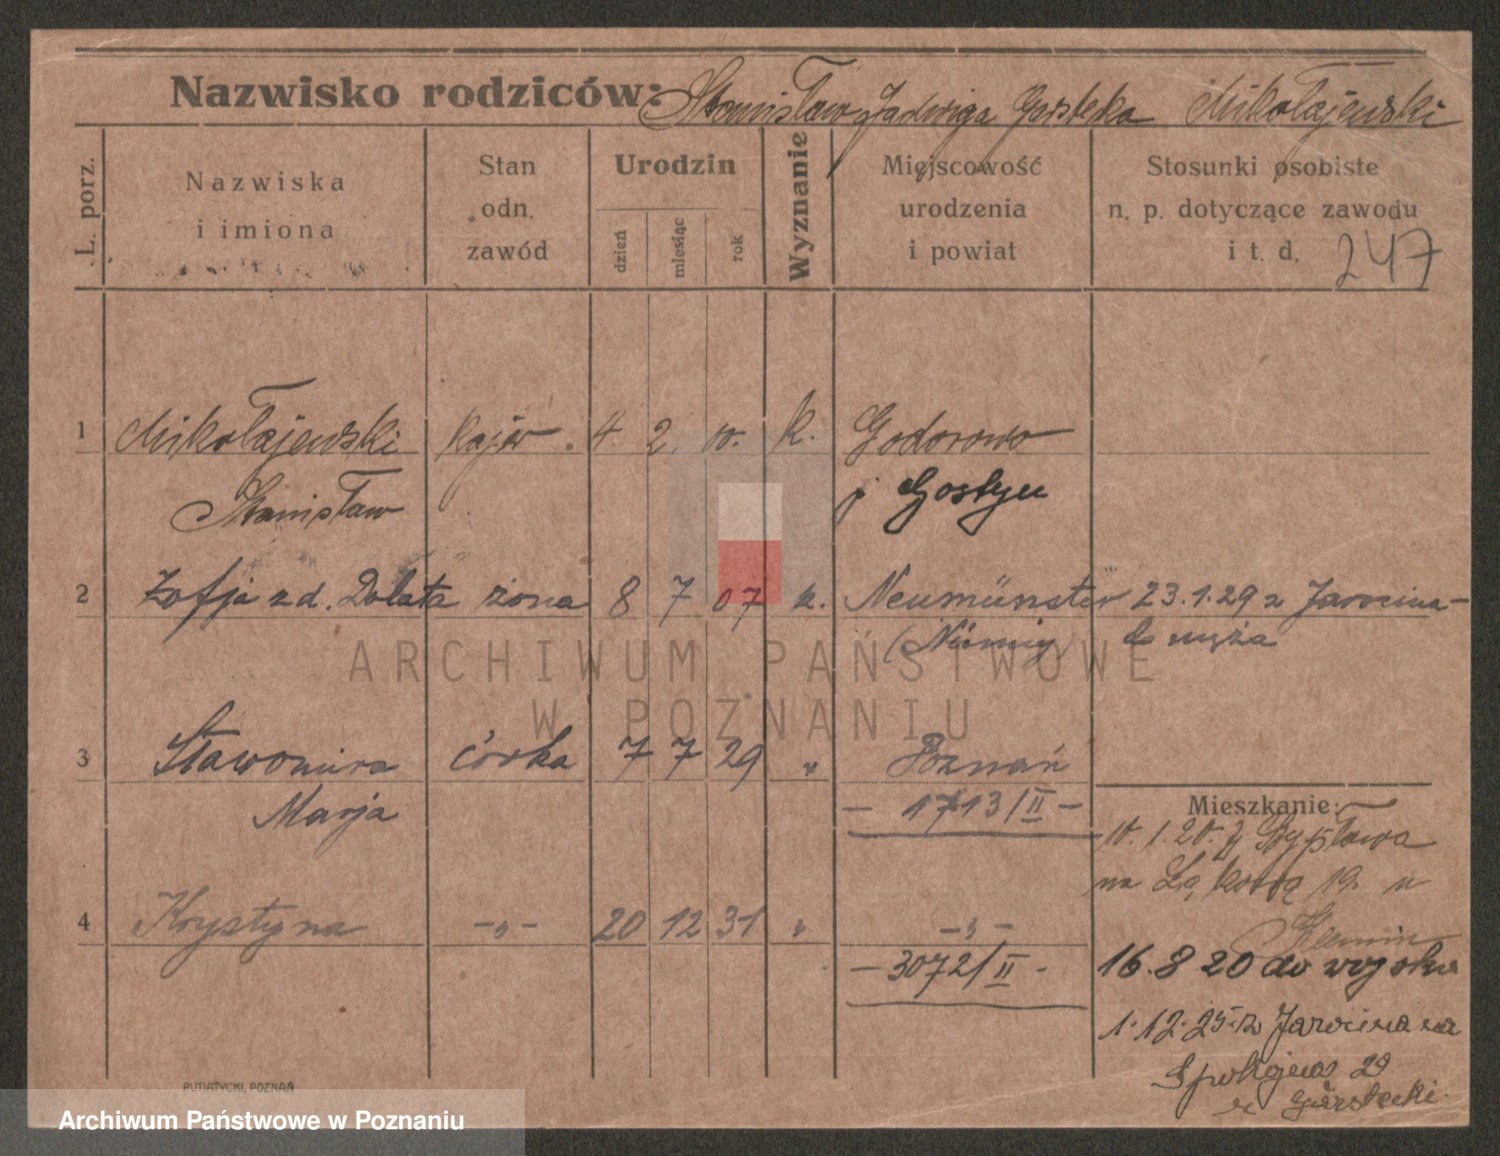 Nazwisko rodziców: Stanisław Jadwiga Gerstęka Mikołajewski
L. porz.
Nazwiska i imiona
Stan odn. zawód
Urodzin
dzień
miesiąc
rok
Wyznanie
Miejscowość urodzenia i powiat
Stosunki osobiste n. p. dotyczące zawodu i t. d.
247
1 Mikołajewski 4. 2. k. Godorowo
Stanisław p Gostyń
2 Zofja z d. Dolata żona 8 7 07 k. Neumünster 23.1.29 z Jarocina-
do męża
3 Sławomira córka 7 7 29 " Poznań
Marja - 1713/II -
Mieszkanie:
na Łąkową 19. u
4 Krystyna -„- 20 12 31 " -„-
- 3072/II -
16.8 20 do wojska
1.12.25. z Jarocina na
Spokojna 29
u Garstecki.
PUTIATYCKI, POZNAŃ
ARCHIWUM PAŃSTWOWE
W POZNANIU
Archiwum Państwowe w Poznaniu